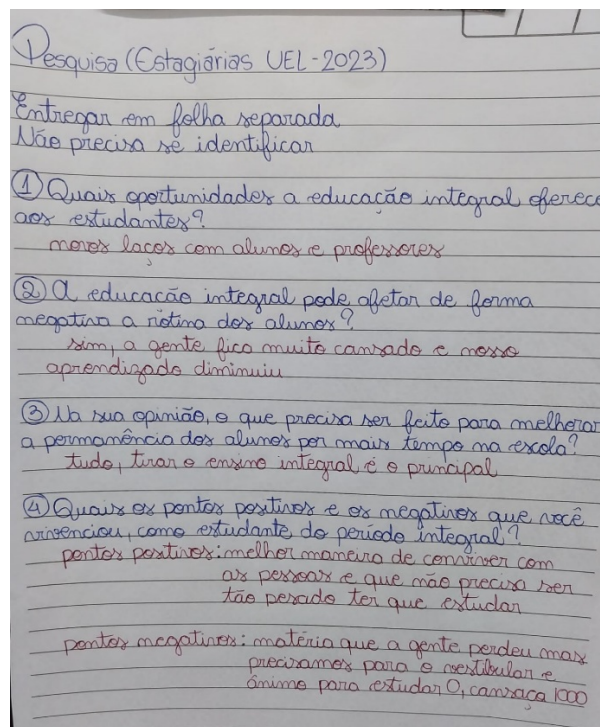 Pesquisa (Estagiárias UEL - 2023)
Entregar em folha separada
Não precisa se identificar
① Quais oportunidades a educação integral oferece
aos estudantes?
novos laços com alunos e professores
② A educação integral pode afetar de forma
negativa a rotina dos alunos?
sim, a gente fica muito cansado e nosso
aprendizado diminuiu
③ Na sua opinião, o que precisa ser feito para melhorar
a permanência dos alunos por mais tempo na escola?
tudo, tirar o ensino integral é o principal
④ Quais os pontos positivos e os negativos que você
vivenciou, como estudante do período integral?
pontos positivos: melhor maneira de conviver com
as pessoas e que não precisa ser
tão pesado ter que estudar
pontos negativos: matéria que a gente perdeu mas
precisamos para o vestibular e
ânimo para estudar 0, cansaça 1000